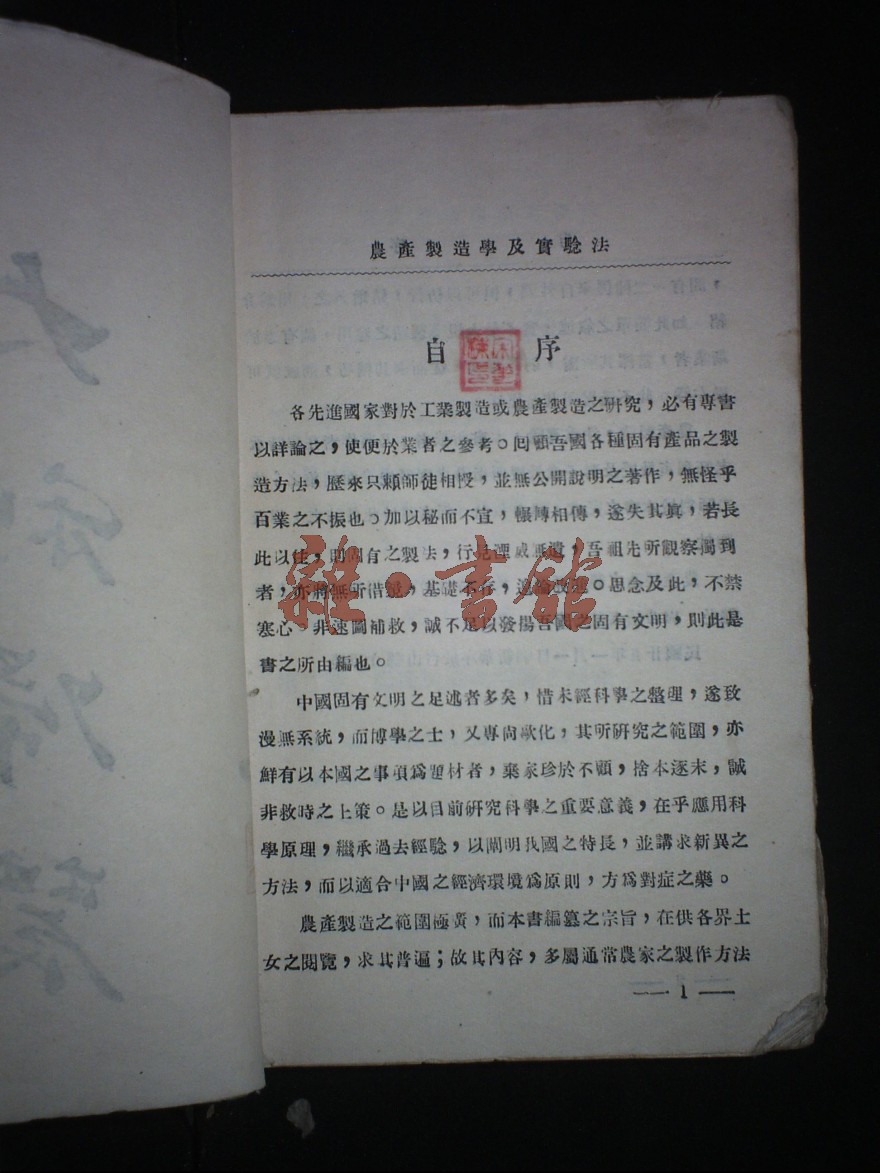 農產製造學及實驗法
自序
各先進國家對於工業製造或農產製造之研究，必有專書
以詳論之，使便於業者之參考。囘顧吾國各種固有產品之製
造方法，歷來只賴師徒相授，並無公開說明之著作，無怪乎
百業之不振也。加以秘而不宣，輾轉相傳，遂失其眞，若長
此以往，則固有之製法，行見湮滅無遺，吾祖先所觀察獨到
者，亦將無所借鏡，基礎不存，遑論改進。思念及此，不禁
寒心。非速圖補救，誠不足以發揚吾國之固有文明，則此是
書之所由編也。
中國固有文明之足述者多矣，惜未經科學之整理，遂致
漫無系統，而博學之士，又專尚歐化，其所研究之範圍，亦
鮮有以本國之事項爲題材者，棄家珍於不顧，捨本逐末，誠
非救時之上策。是以目前研究科學之重要意義，在乎應用科
學原理，繼承過去經驗，以闡明我國之特長，並講求新異之
方法，而以適合中國之經濟環境爲原則，方爲對症之藥。
農產製造之範圍極廣，而本書編纂之宗旨，在供各界士
女之閱覽，求其普遍；故其內容，多屬通常農家之製作方法
— 1 —
雜·書館